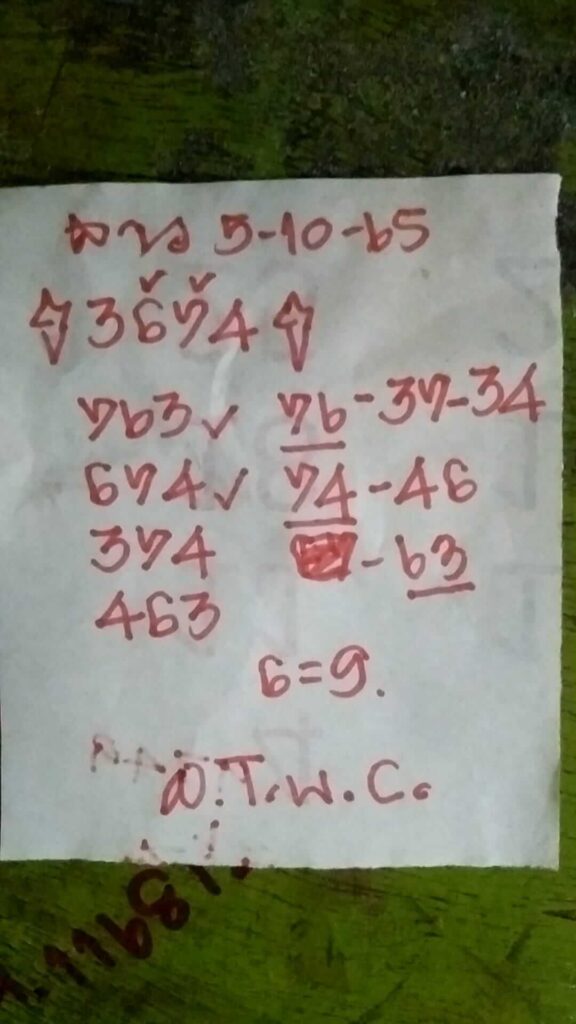 ลาว 5-10-65
3674
763✓ 76-37-34
674✓ 74-46
374 -63
463
6=9.
อ.T.W.C.